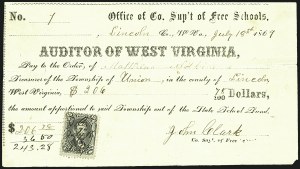 No. 1 Office of Co. Sup't of Free Schools,
Lincoln Co., W. Va., July 18th 1867
AUDITOR OF WEST VIRGINIA,
Pay to the Order, of
Treasurer of the Township of Union, in the county of Lincoln
West Virginia, $ 206 78/100 Dollars,
the amount apportioned to said Township out of the State School Fund.
$ 206.78
36.50
243.28
John Clark
Co. Sup't. of Free